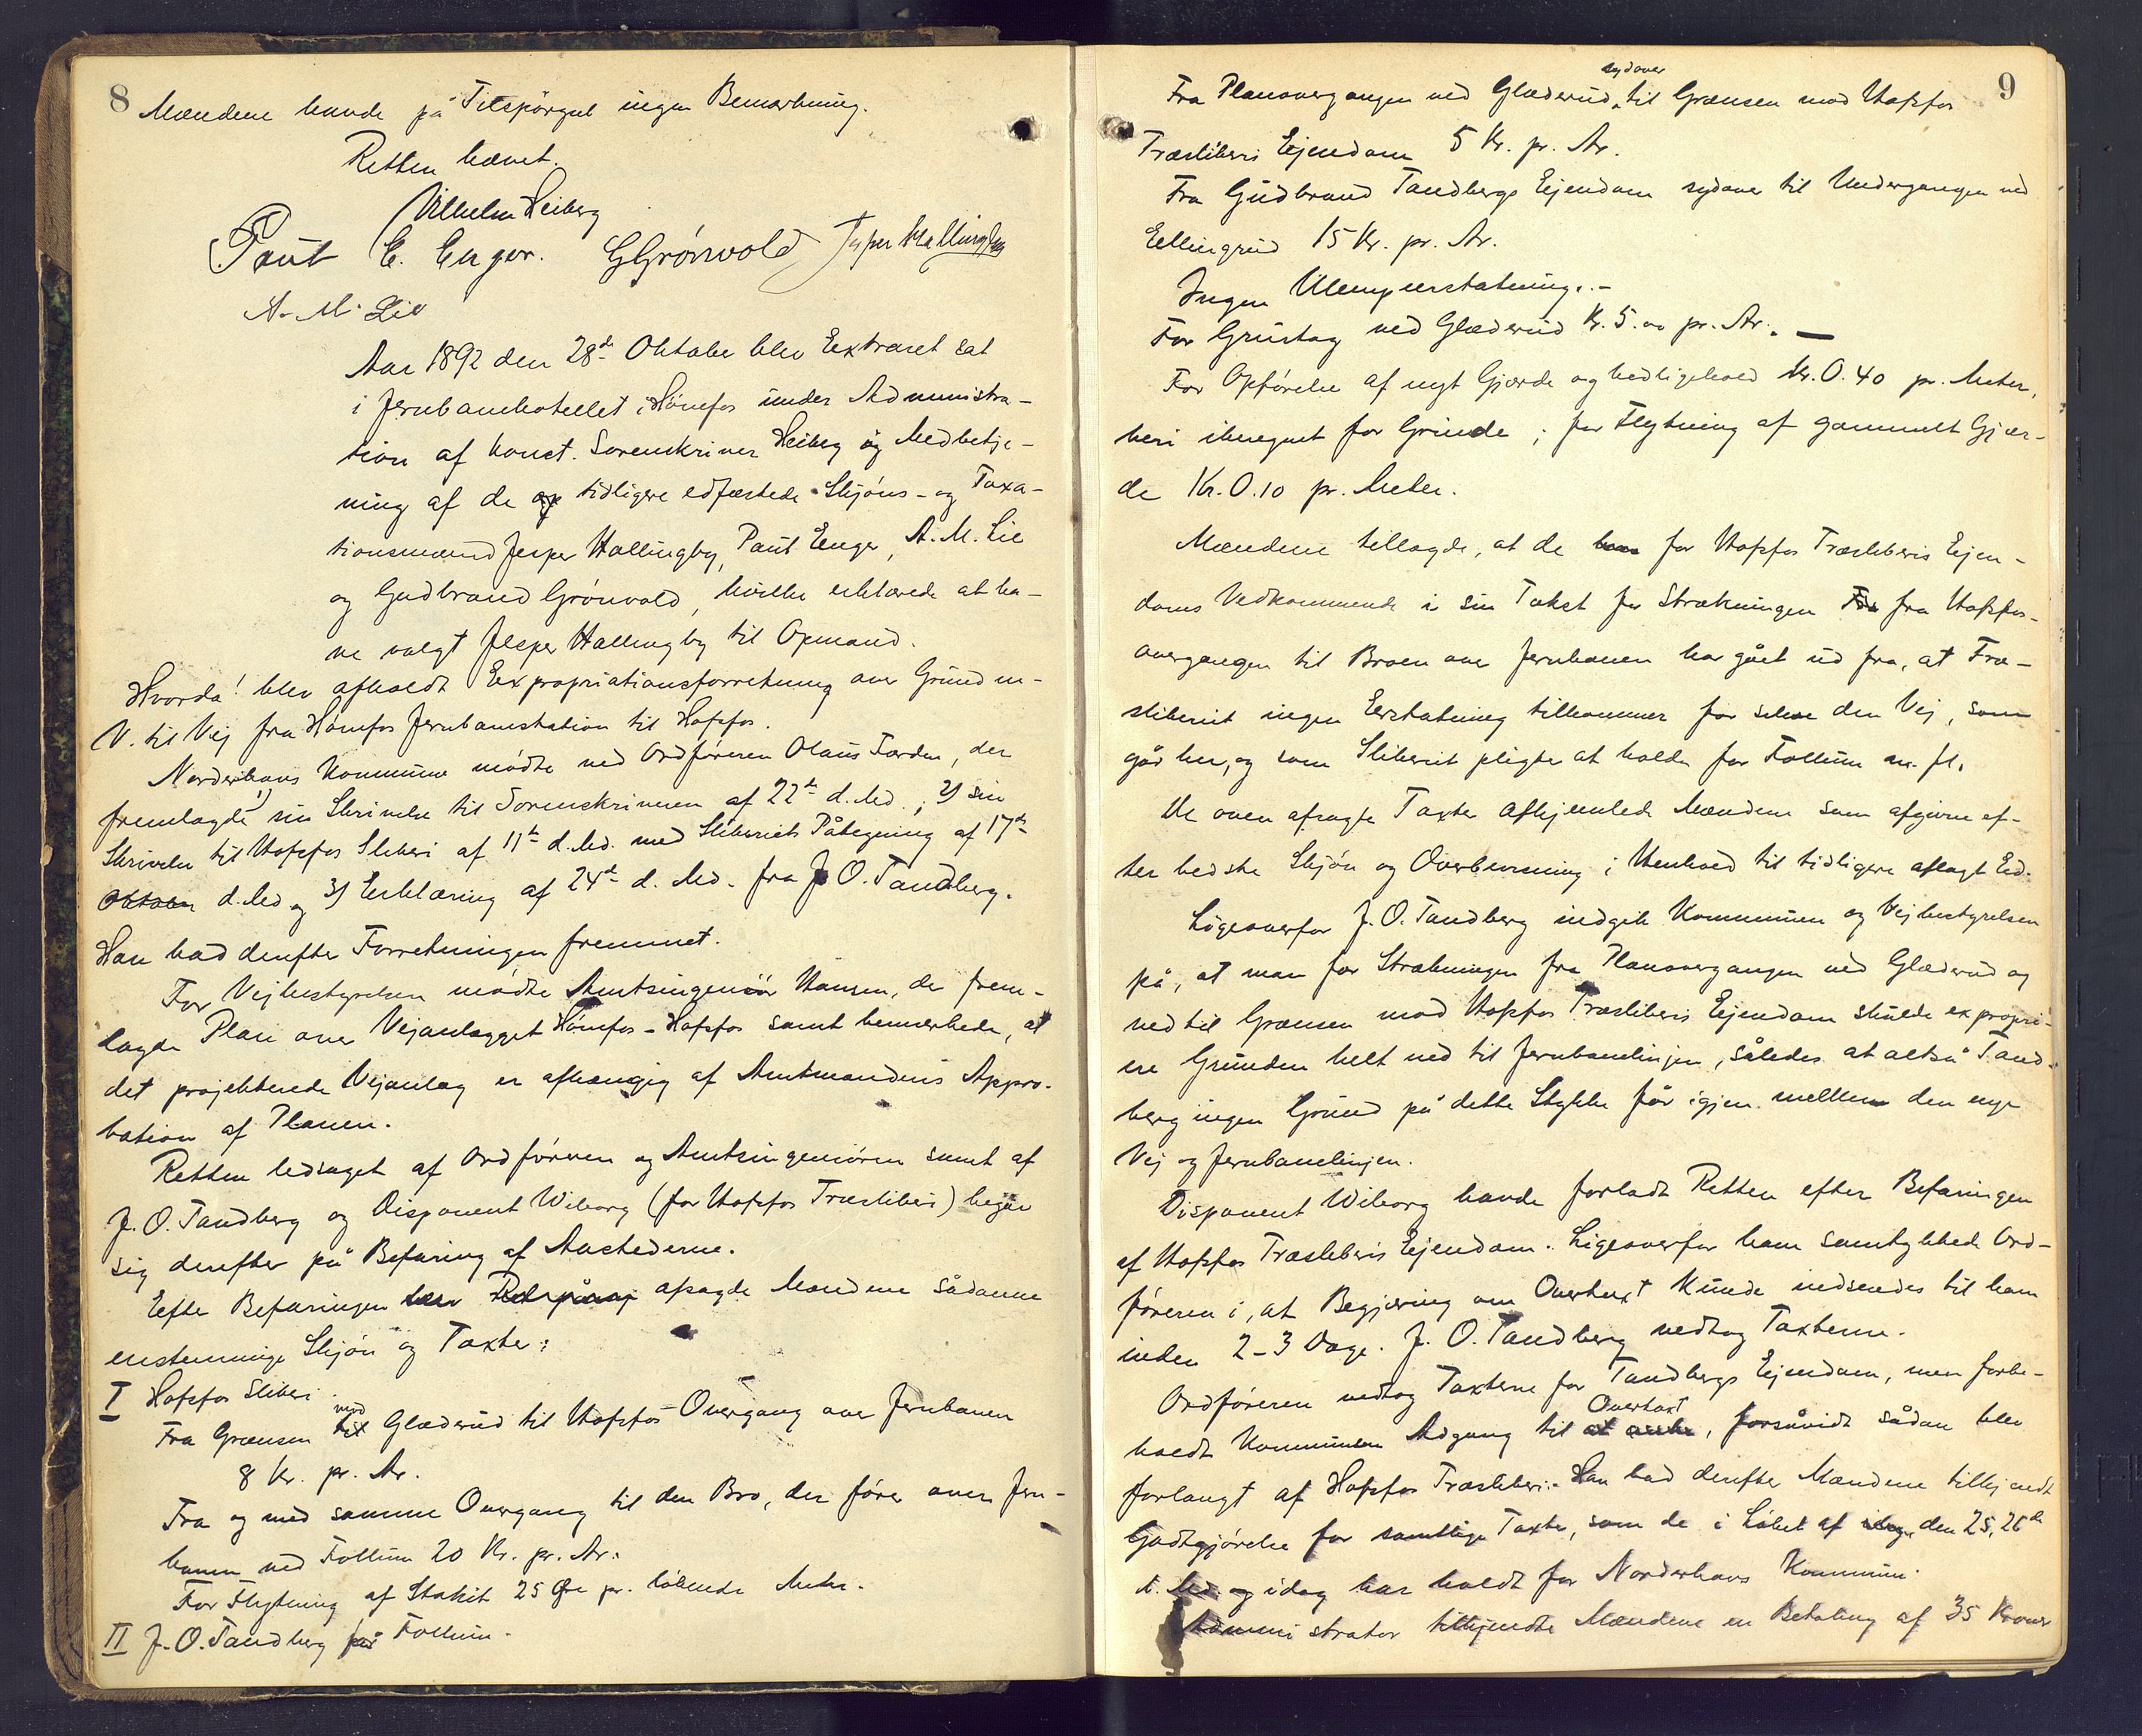 8
Mændene havde på Tilspørgsel ingen Bemærkning.
Retten hævet.
Vilhelm Heiberg
Paul E. Enger. GGrönvold Jesper Hallingby
A. M. Lie
Aar 1892 den 28de Oktober blev Extraret sat
i Jernbanehotellet i Hönefos under Administra-
tion af konst. Sorenskriver Heiberg og Medbetje-
ning af de af tidligere edfæstede Skjöns- og Taxa-
tionsmænd Jesper Hallingby, Paul Enger, A. M. Lie
og Gudbrand Grönvold, hvilke erklærede at ha-
ve valgt Jesper Hallingby til Opmand.
Hvorda! blev afholdt Expropriationsforretning over Grund m-
V. til Vej fra Hönefos Jernbanestation til Hofsfos.
Norderhovs Kommune mödte ved Ordföreren Olaus Færden, der
fremlagde 1) sin Skrivelse til Sorenskriveren af 22de d. Md.; 2) sin
Skrivelse til Hofsfos Sliberi af 11te d. Md. med Sliberiets Påtegning af 17de
Oktober d. Md og 3) Erklæring af 24de d. Md. fra J. O. Tandberg.
Han bad derefter Forretningen fremmet.
For Vejbestyrelsen mödte Amtsingeniör Hansen, der frem-
lagde Plan over Vejanlægget Hönefos-Hofsfos samt bemærkede, at
det projekterede Vejanlæg er afhængig af Amtmandens Appro-
bation af Planen.
Retten ledsaget af Ordföreren og Amtsingeniören samt af
J. O. Tandberg og Disponent Wiborg (for Hofsfos Træsliberi) begav
sig derefter på Befaring af Aastederne.
Efter Befaringen afsagde Mændene sådanne
enstemmige Skjön og Taxter:
I Hofsfos Sliberi.
Fra Grænsen til mod Glæderud til Hofsfos Overgang over Jernbanen
8 Kr. pr. Ar.
Fra og med samme Overgang til den Bro, der förer over Jern-
banen ved Follum 20 Kr. pr. Ar.
For Flytning af Stakit 25 Öre pr. löbende Meter.
II J. O. Tandberg på Follum.
9
Fra Planovergangen ved Glæderud sydover til Grænsen mod Hofsfos
Træsliberis Ejendom 5 Kr. pr. Ar.
Fra Gudbrand Tandbergs Ejendom sydover til Undergangen ved
Ellingrud 15 Kr. pr. Ar.
Ingen Ulempeerstatning.-
For Grustag ved Glæderud Kr. 5.00 pr. Ar. -
For Opförelse af nyt Gjærde og Vedligehold Kr. 0.40 pr. Meter,
heri iberegnet for Grinde; for Flytning af gammelt Gjær-
de Kr. 0.10 pr. Meter.
Mændene tillagde, at de for Hofsfos Træsliberis Ejen-
doms Vedkommende i sin Takst for Strækningen Fra fra Hofsfos-
overgangen til Broen over Jernbanen har gået ud fra, at Træ-
sliberiet ingen Erstatning tilkommer for selve den Vej, som
går her, og som Sliberiet pligter at holde for Follum m. fl.
De oven afsagte Taxter afhjemlede Mændene som afgivne ef-
ter bedste Skjön og Overbevisning i Henhold til tidligere aflagt Ed.
Ligeoverfor J. O. Tandberg indgik Kommunen og Vejbestyrelsen
på, at man for Strækningen fra Planovergangen ved Glæderud og
ned til Grænsen mod Hofsfos Træsliberis Ejendom skulde expropri-
ere Grunden helt ned til Jernbanelinjen, således at altså Tand-
berg ingen Grund på dette Stykke får igjen mellem den nye
Vej og Jernbanelinjen.
Disponent Wiborg havde forladt Retten efter Befaringen
af Hofsfos Træsliberis Ejendom. Ligeoverfor ham samtykkede Ord-
föreren i, at Begjæring om Overtaxt kunde indsendes til ham
inden 2-3 Dage. J. O. Tandberg vedtog Taxterne.
Ordföreren vedtog Taxterne for Tandbergs Ejendom, men forbe-
holdt Kommunen Adgang til Overtaxt, forsåvidt sådan blev
forlangt af Hofsfos Træsliberi. Han bad derefter Mændene tilkjendt
Godtgjörelse for samtlige Taxter, som de i Löbet af den 25, 26de
d. Md. og idag har holdt for Norderhovs Kommune.
Administrator tilkjendte Mændene en Betaling af 35 Kroner